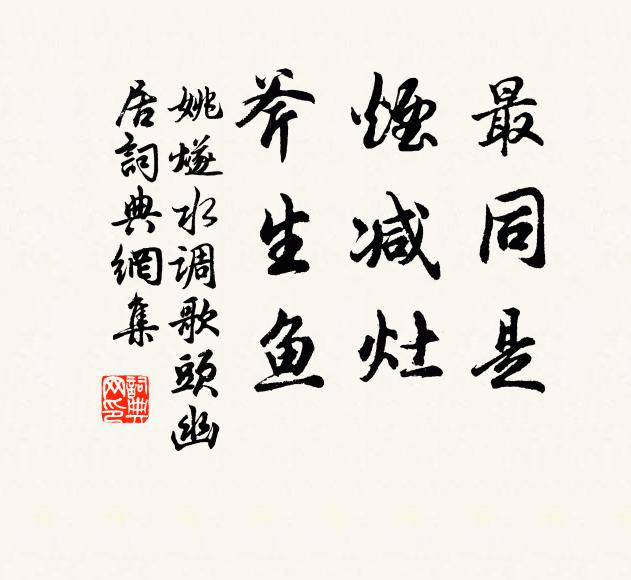 最同是
煙减灶
斧生鱼
姚燧水调歌頭幽
居詞典網集
詞典
网印